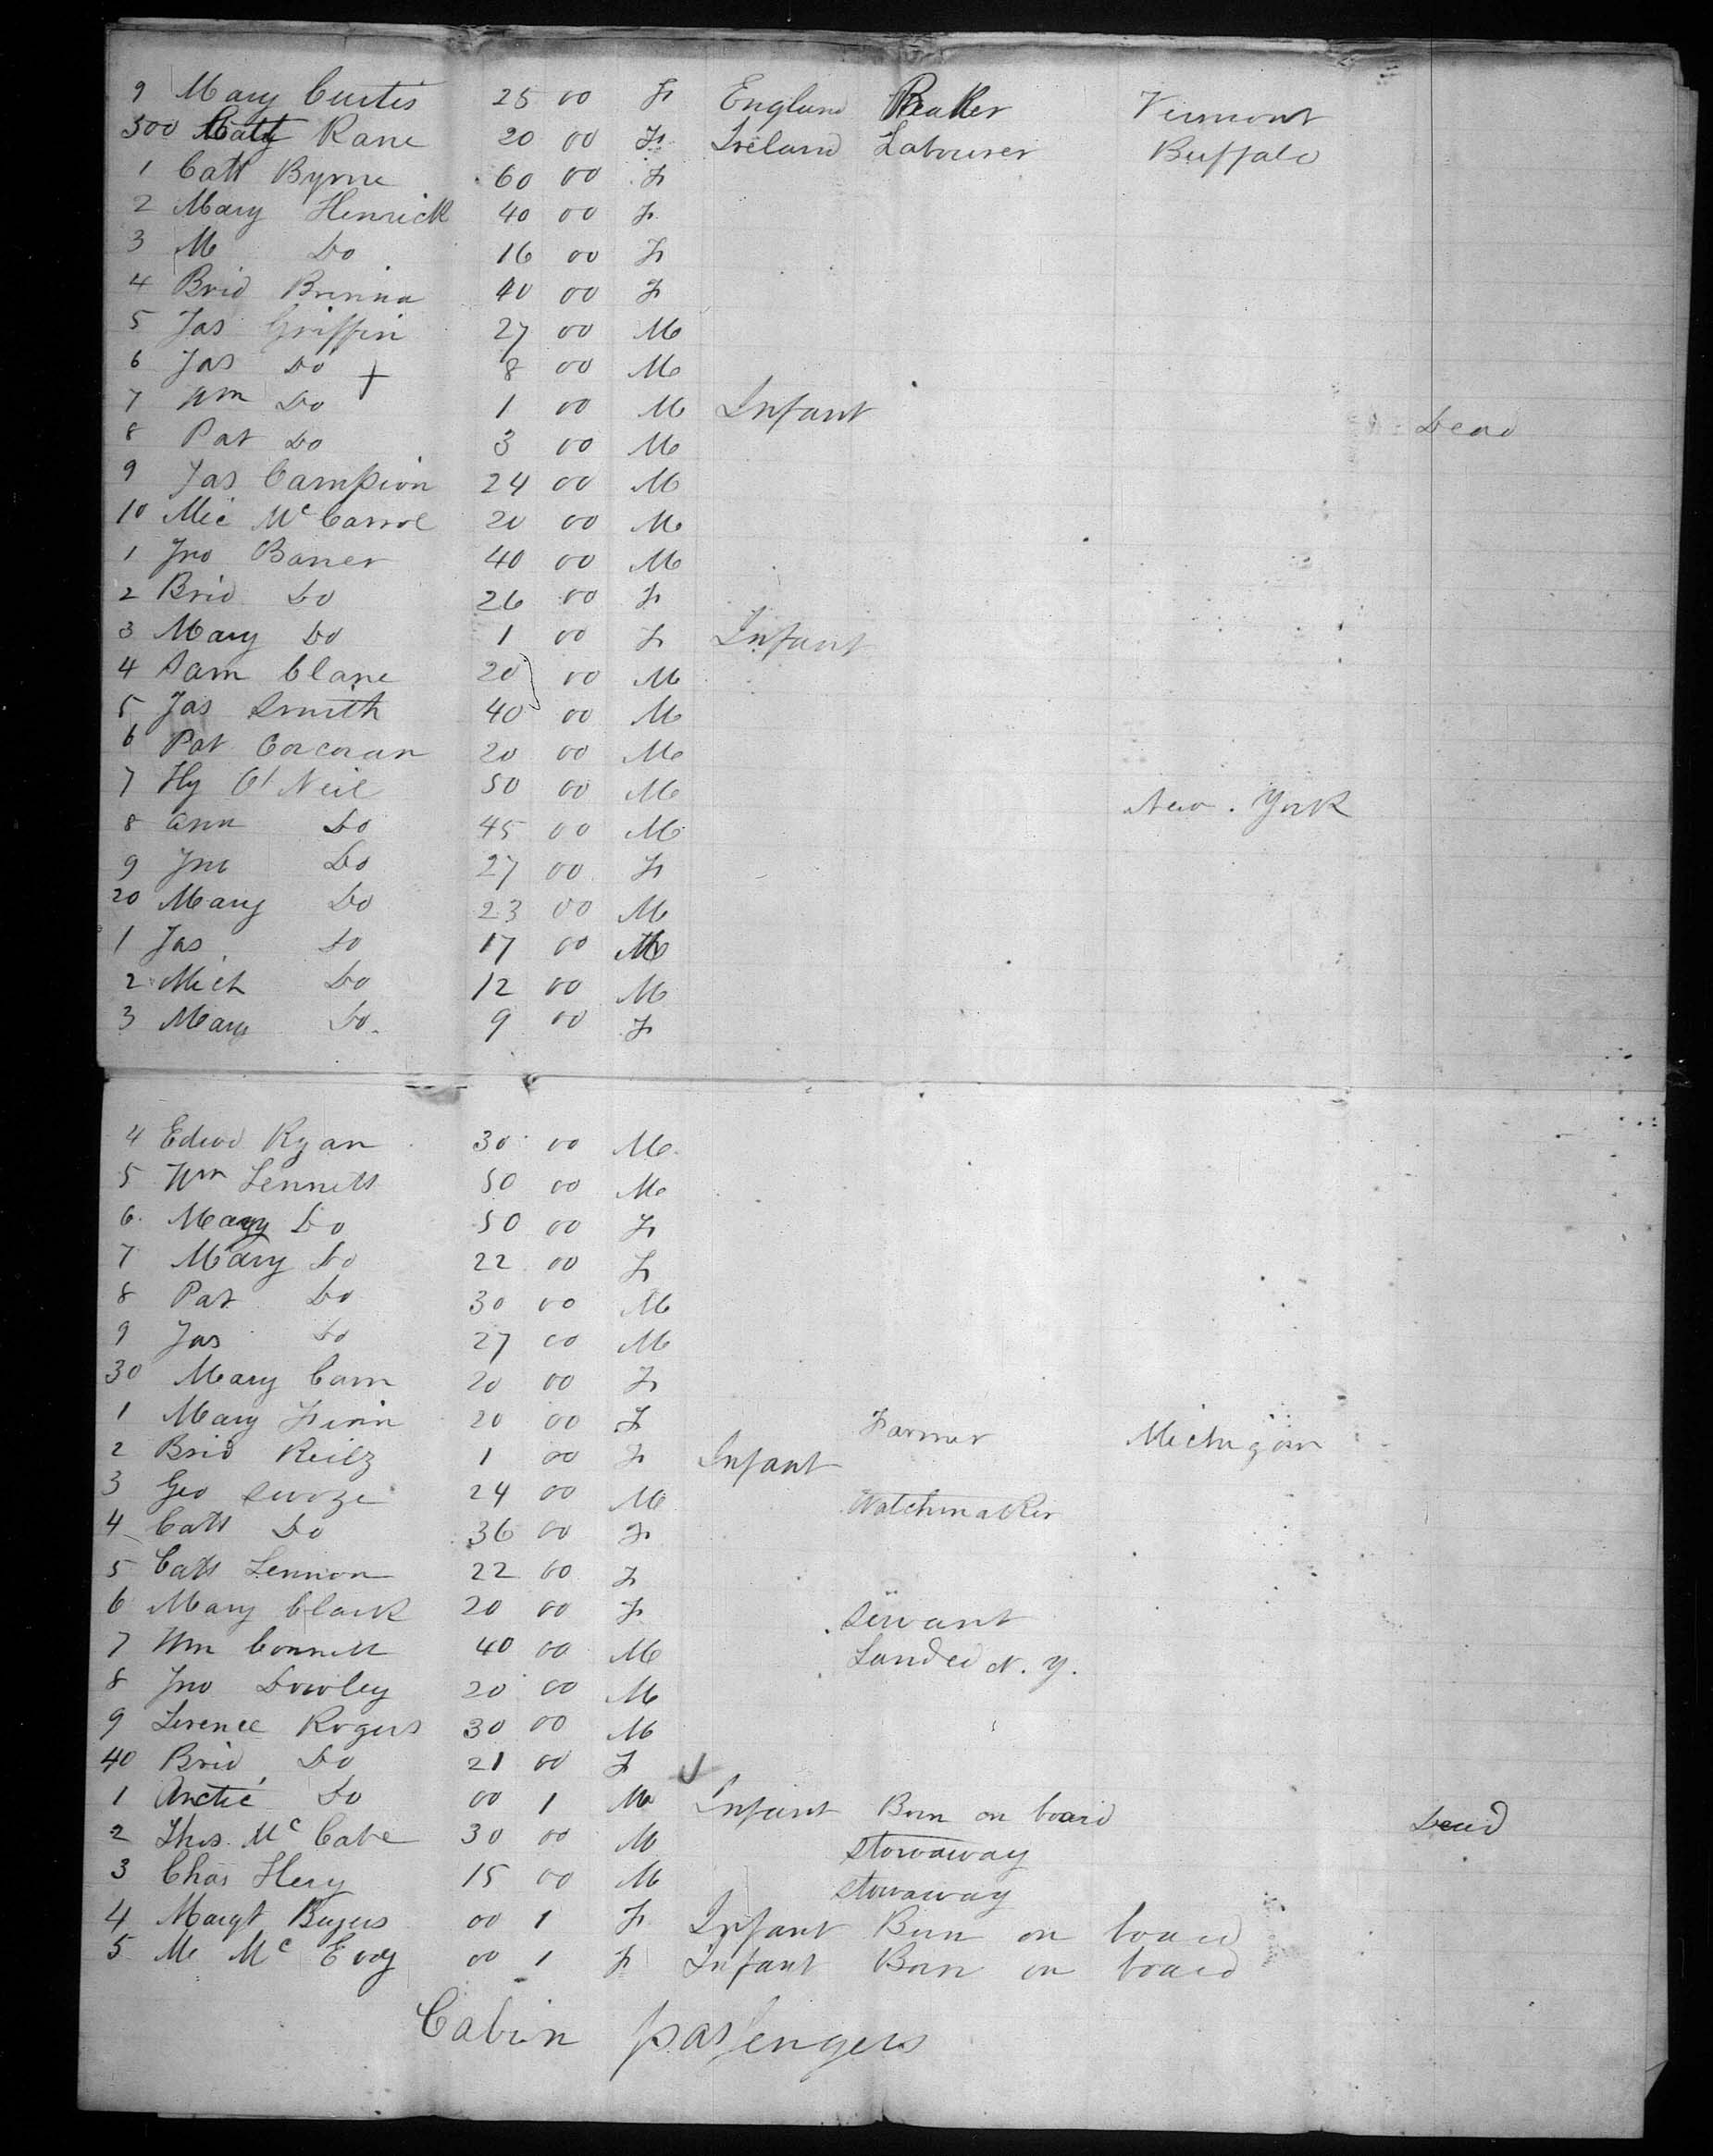 9 Mary Curtis 25 00 F England Vermont
500 Cath Kane 20 00 F Ireland Labourer Buffalo
1 Cath Byrne 60 00 F
2 Mary Henrick 40 00 F
3 M Do 16 00 F
4 Brid Brinna 40 00 F
5 Jas Griffin 27 00 M
6 Jas Do + 8 00 M
7 Wm Do 1 00 M Infant Dead
8 Pat Do 3 00 M
9 Jas Campion 24 00 M
10 Mic McCarrol 20 00 M
1 Jno Barrer 40 00 M
2 Brid Do 26 00 F
3 Mary Do 1 00 F Infant
4 Sam Clane 20 00 M
5 Jas Smith 40 00 M
6 Pat Corcoran 20 00 M
7 Hy O'Neil 50 00 M New York
8 Ann Do 45 00 M
9 Jno Do 27 00 F
20 Mary Do 23 00 M
1 Jas Do 17 00 M
2 Mich Do 12 00 M
3 Mary Do 9 00 F
4 Edwd Ryan 30 00 M
5 Wm Lennett 50 00 M
6 Mary Do 50 00 F
7 Mary Do 22 00 F
8 Pat Do 30 00 M
9 Jas Do 27 00 M
30 Mary Carn 20 00 F
1 Mary Finn 20 00 F Farmer Michigan
2 Brid Reily 1 00 F Infant
3 Geo 24 00 M Watchmaker
4 Cath Do 36 00 F
5 Cath Lennon 22 00 F
6 Mary Clark 20 00 F Servant
7 Wm Connell 40 00 M Landed N.Y.
8 Jno Dowley 20 00 M
9 Terence Rogers 30 00 M
40 Brid Do 21 00 F
1 Arctic Do 00 1 M Infant Born on board Dead
2 Thos McCabe 30 00 M Stowaway
3 Chas Hery 15 00 M Stowaway
4 Margt 00 1 F Infant Born on board
5 M McEvoy 00 1 F Infant Born on board
Cabin passengers